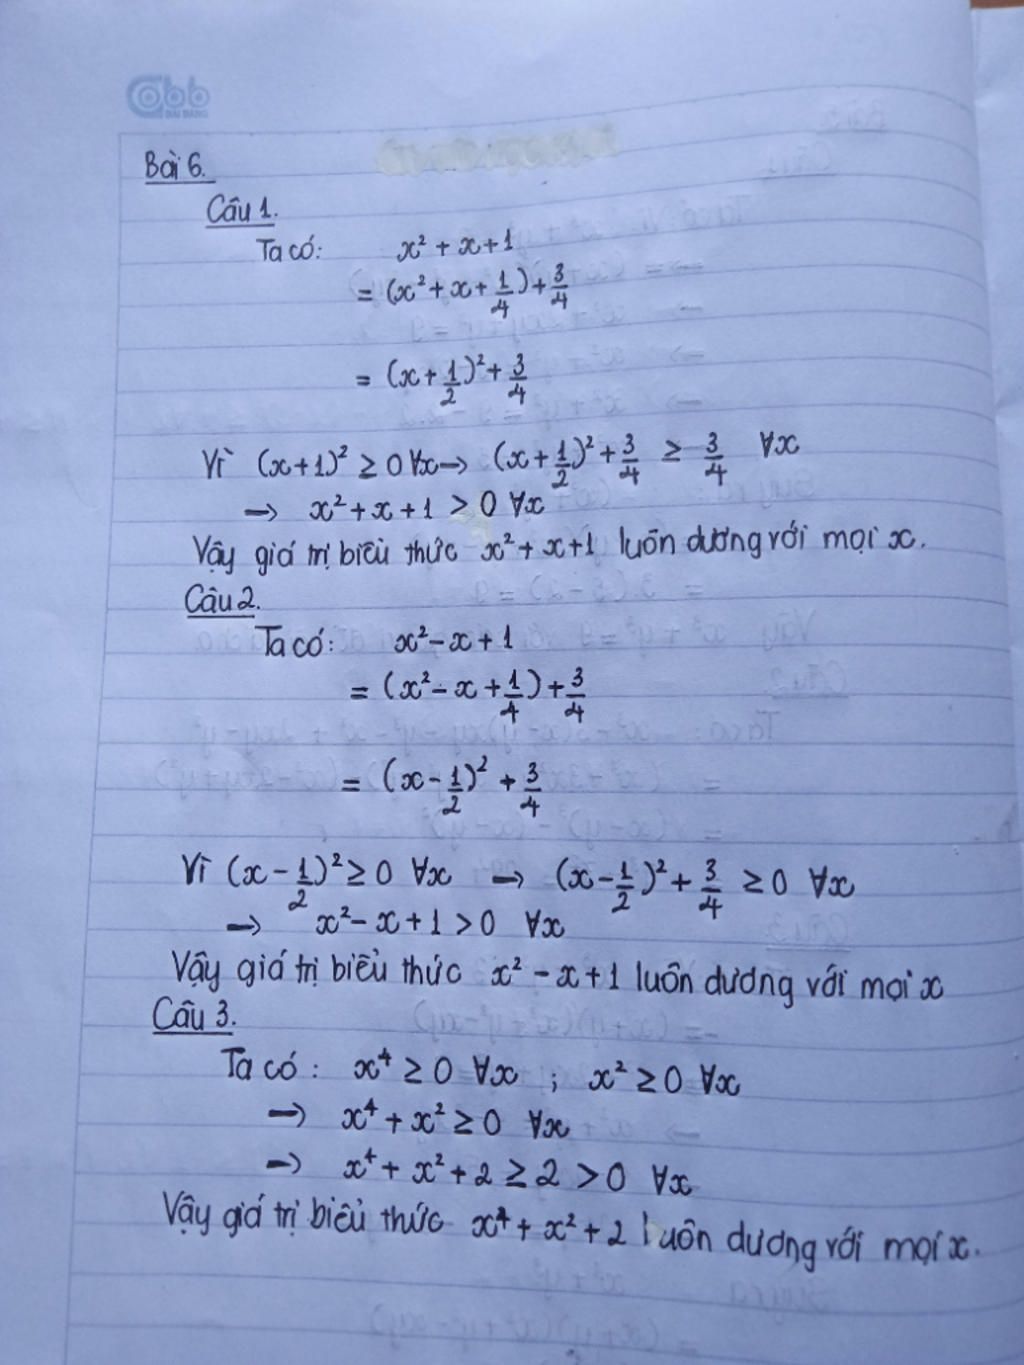 abb
HẢI ĐĂNG
Bài 6.
Câu 1.
Ta có: x² + x + 1
= (x² + x + 1/4) + 3/4
= (x + 1/2)² + 3/4
Vì (x+1)² ≥ 0 ∀x → (x + 1/2)² + 3/4 ≥ 3/4 ∀x
→ x² + x + 1 > 0 ∀x
Vậy giá trị biểu thức x² + x + 1 luôn dương với mọi x.
Câu 2.
Ta có: x² - x + 1
= (x² - x + 1/4) + 3/4
= (x - 1/2)² + 3/4
Vì (x - 1/2)² ≥ 0 ∀x → (x - 1/2)² + 3/4 ≥ 0 ∀x
→ x² - x + 1 > 0 ∀x
Vậy giá trị biểu thức x² - x + 1 luôn dương với mọi x
Câu 3.
Ta có: x⁴ ≥ 0 ∀x ; x² ≥ 0 ∀x
→ x⁴ + x² ≥ 0 ∀x
→ x⁴ + x² + 2 ≥ 2 > 0 ∀x
Vậy giá trị biểu thức x⁴ + x² + 2 luôn dương với mọi x.